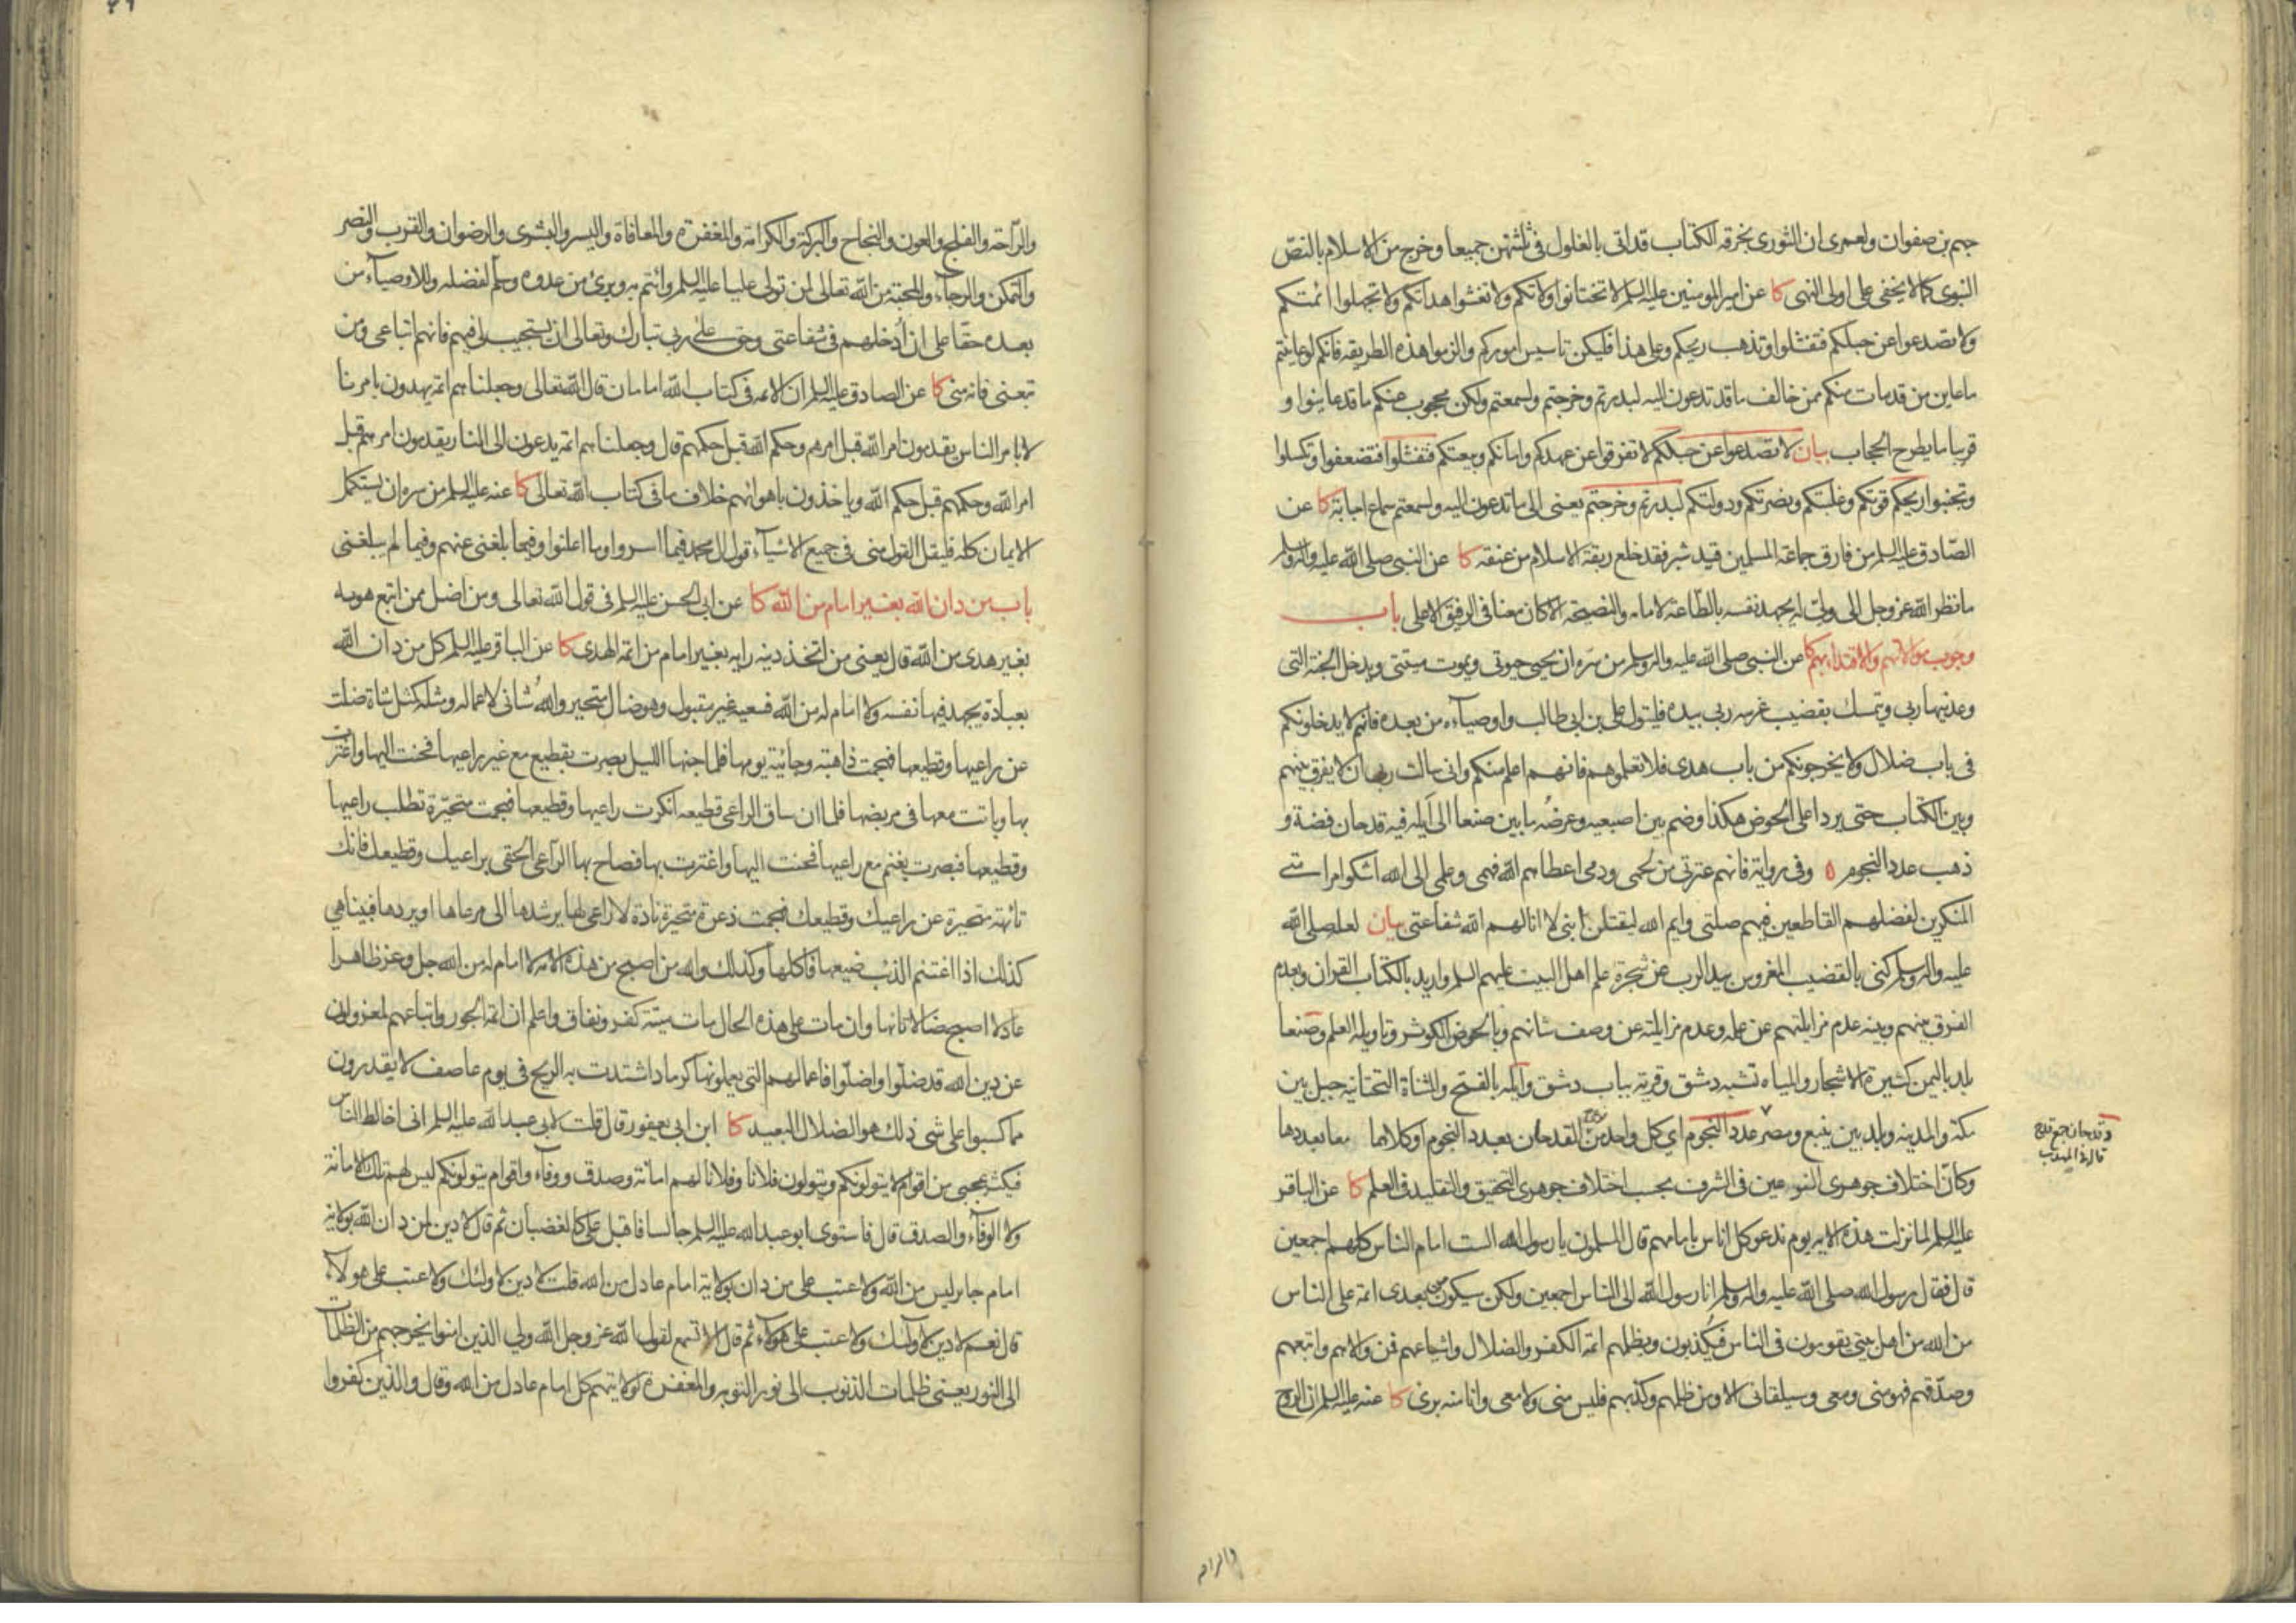 جهم بن صفوان ولعمري ان الثوري بخرقه الكتاب قد اتى بالغلول في ثلثتهن جميعا وخرج من الاسلام بالنصّ
النبوي كما لا يخفى على اولى النهى كا عن امير المومنين عليه السلم لا تختانوا ولاتكم ولا تغشوا هداتكم ولا تجهلوا ائمتكم
ولا تصدعوا عن حبلكم فتفشلوا وتذهب ريحكم وعلى هذا فليكن تاسيس اموركم والزموا هذه الطريقه فانكم لو عاينتم
ما عاين من قد مات منكم ممن خالف ما قد تدعون اليه لبدرتم وخرجتم ولسمعتم ولكن محجوب عنكم ما قد عاينوا و
قريبا ما يطرح الحجاب بيان لا تصدعوا عن حبلكم لا تفرقوا عن عهدكم وامانكم وبيعتكم فتفشلوا فتضعفوا وتكسلوا
وتجبنوا ريحكم قوتكم وغلبتكم ونصرتكم ودولتكم لبدرتم وخرجتم يعنى الى ما تدعون اليه ولسمعتم سماع اجابة كا عن
الصّادق عليه السلم من فارق جماعة المسلمين قيد شبر فقد خلع ربقة الاسلام من عنقه كا عن النبى صلى الله عليه واله وسلم
ما نظر الله عز وجل الى ولىّ له يجهد نفسه بالطّاعة لامامه والنصيحة الا كان معنا فى الرفيق الاعلى باب
وجوب موالاتهم والاقتداء بهم كا عن النبى صلى الله عليه واله وسلم من سرّه ان يحيى حيوتى ويموت ميتتى ويدخل الجنة التى
وعدنيها ربى ويتمسك بقضيب غرسه ربى بيده فليتول على بن ابى طالب واوصياءه من بعده فانهم لا يدخلونكم
فى باب ضلال ولا يخرجونكم من باب هدى فلا تعلموهم فانهم اعلم منكم وانى سالت ربى ان لا يفرق بينهم
وبين الكتاب حتى يردا على الحوض هكذا وضم بين اصبعيه وعرضه ما بين صنعا الى ايله فيه قدحان فضة و
ذهب عدد النجوم ٥ وفى رواية فانهم عترتى من لحمى ودمى اعطاهم الله فهمى وعلمى الى الله اشكوا امر امتى
المنكرين لفضلهم القاطعين فيهم صلتى وايم الله ليقتلن ابنى لا انالهم الله شفاعتى بيان لعله صلى الله
عليه واله وسلم كنى بالقضيب المغروس بيد الرب عن شجرة علم اهل البيت عليهم السلم واريد بالكتاب القران وبعدم
الفرق بينهم وبينه عدم مزايلتهم عن علمه وعدم مزايلته عن وصف شانهم وبالحوض الكوثر وتاويله العلم وصنعا
بلد باليمن كثيرة الاشجار والمياه تشبه دشق وقرية بباب دشق وايله بالفتح والمثناة التحتانيه جبل بين
مكة والمدينه وبلد بين ينبع ومصر عدد النجوم اي كل واحد من القدحان بعدد النجوم او كلاهما معا بعددها
وقدحان جمع قدح
قاله فى المهذب
وكانّ اختلاف جوهرى النوعين فى الشرف بحسب اختلاف جوهرى التحقيق والتقليد فى العلم كا عن الباقر
عليه السلم لما نزلت هذه الايه يوم ندعو كل اناس بامامهم قال المسلمون يا رسول الله الست امام الناس كلهم اجمعين
قال فقال رسول الله صلى الله عليه واله وسلم انا رسول الله الى الناس اجمعين ولكن سيكون من بعدى ائمة على الناس
من الله من اهل بيتى يقومون فى الناس فيكذبون ويظلمهم ائمة الكفر والضلال واشياعهم فمن والاهم واتبعهم
وصدّقهم فهو منى ومعى وسيلقانى الا ومن ظلمهم وكذبهم فليس منى ولا معى وانا منه برى كا عنه عليه السلم ان الروح
والراحة والفلج والعون والنجاح والبركة والكرامة والمغفرة والمعافاة واليسر والبشرى والرضوان والقرب والنصر
والتمكن والرجاء والمحبة من الله تعالى لمن تولى عليا عليه السلم وائتم به وبرئ من عدوه وسلّم لفضله وللاوصياء من
بعده حقا على ان ادخلهم فى شفاعتى وحق على ربى تبارك وتعالى ان يستجيب لى فيهم فانهم اتباعى ومن
تبعنى فانه منى كا عن الصادق عليه السلم ان الائمه فى كتاب الله امامان قال الله تعالى وجعلناهم ائمة يهدون بامرنا
لا بامر الناس يقدمون امر الله قبل امرهم وحكم الله قبل حكمهم قال وجعلناهم ائمة يدعون الى النار يقدمون امرهم قبل
امر الله وحكمهم قبل حكم الله وياخذون باهوائهم خلاف ما فى كتاب الله تعالى كا عنه عليه السلم من سره ان يستكمل
الايمان كله فليقل القول منى فى جميع الاشياء قول ال محمد فيما اسروا وما اعلنوا وفيما بلغنى عنهم وفيما لم يبلغنى
باب من دان الله بغير امام من الله كا عن ابى الحسن عليه السلم فى قول الله تعالى ومن اضل ممن اتبع هويه
بغير هدى من الله قال يعنى من اتخذ دينه رايه بغير امام من ائمة الهدى كا عن الباقر عليه السلم كل من دان الله
بعبادة يجهد فيها نفسه ولا امام له من الله فسعيه غير مقبول وهو ضال متحير والله شانئ لاعماله ومثله كمثل شاة ضلت
عن راعيها وقطيعها فهجمت ذاهبة وجائية يومها فلما اجنها الليل بصرت بقطيع مع غير راعيها فحنت اليها واغترت
بها وباتت معها فى مربضها فلما ان ساق الراعى قطيعه انكرت راعيها وقطيعها فهجمت متحيّرة تطلب راعيها
وقطيعها فبصرت بغنم مع راعيها فحنت اليها واغترت بها فصاح بها الراعى الحقى براعيك وقطيعك فانك
تائهة متحيرة عن راعيك وقطيعك فهجمت ذعرة متحيرة نادة لا راعى لها يرشدها الى مرعاها او يردها فبينا هى
كذلك اذا اغتنم الذئب ضيعها فاكلها وكذلك والله من اصبح من هذه الامه لا امام له من الله جل وعز ظاهرا
عادلا اصبح ضالا تائها وان مات على هذه الحال مات ميتة كفر ونفاق واعلم ان ائمة الجور واتباعهم لمعزولون
عن دين الله قد ضلّوا واضلّوا فاعمالهم التى يعملونها كرماد اشتدت به الريح فى يوم عاصف لا يقدرون
مما كسبوا على شى ذلك هو الضلال البعيد كا ابن ابى يعفور قال قلت لابى عبد الله عليه السلم انى اخالط الناس
فيكثر عجبى من اقوام لا يتولونكم ويتولون فلانا وفلانا لهم امانة وصدق ووفاء واقوام يتولونكم ليس لهم تلك الامانة
ولا الوفاء والصدق قال فاستوى ابو عبد الله عليه السلم جالسا فاقبل على كالغضبان ثم قال لا دين لمن دان الله بولاية
امام جابر ليس من الله ولا عتب على من دان بولاية امام عادل من الله قلت لا دين لاولئك ولا عتب على هولاء
قال نعم لا دين لاولئك ولا عتب على هولاء ثم قال الا تسمع لقول الله عز وجل الله ولي الذين امنوا يخرجهم من الظلمات
الى النور يعنى ظلمات الذنوب الى نور التوبه والمغفرة لولايتهم كل امام عادل من الله وقال والذين كفروا